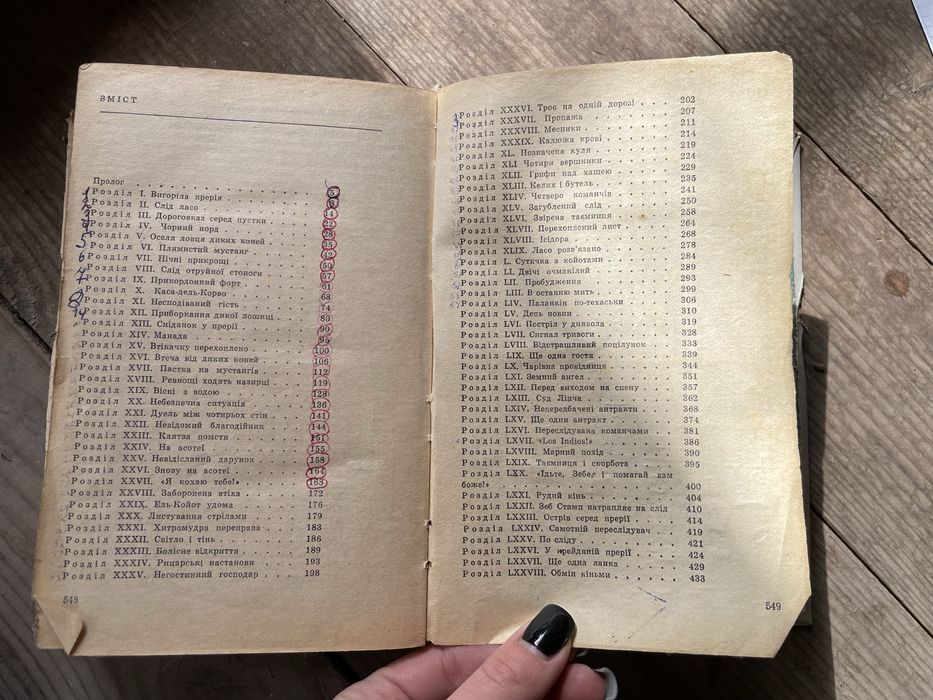 ЗМІСТ
Пролог . . . 5
1 Розділ I. Вигоріла прерія . . . 8
2 Розділ II. Слід ласо . . . 14
3 Розділ III. Дороговказ серед пустки . . . 22
4 Розділ IV. Чорний норд . . . 28
5 Розділ V. Оселя ловця диких коней . . . 35
Розділ VI. Плямистий мустанг . . . 42
6 Розділ VII. Нічні прикрощі . . . 50
Розділ VIII. Слід отруйної стоноги . . . 57
7 Розділ IX. Прикордонний форт . . . 61
Розділ X. Каса-дель-Корво . . . 68
8 Розділ XI. Несподіваний гість . . . 74
Розділ XII. Приборкання дикої лошиці . . . 80
Розділ XIII. Сніданок у прерії . . . 90
Розділ XIV. Манада . . . 95
Розділ XV. Втікачку перехоплено . . . 100
Розділ XVI. Втеча від диких коней . . . 106
Розділ XVII. Пастка на мустангів . . . 112
Розділ XVIII. Ревнощі ходять назирці . . . 119
Розділ XIX. Віскі з водою . . . 128
Розділ XX. Небезпечна ситуація . . . 136
Розділ XXI. Дуель між чотирьох стін . . . 141
Розділ XXII. Невідомий благодійник . . . 144
Розділ XXIII. Клятва помсти . . . 151
Розділ XXIV. На асотеї . . . 155
Розділ XXV. Невідісланий дарунок . . . 158
Розділ XXVI. Знову на асотеї . . . 164
Розділ XXVII. «Я кохаю тебе!» . . . 168
Розділ XXVIII. Заборонена втіха . . . 172
Розділ XXIX. Ель-Койот удома . . . 176
Розділ XXX. Листування стрілами . . . 179
Розділ XXXI. Хитромудра переправа . . . 183
Розділ XXXII. Світло і тінь . . . 186
Розділ XXXIII. Болісне відкриття . . . 189
Розділ XXXIV. Рицарські настанови . . . 193
Розділ XXXV. Негостинний господар . . . 198
548
Розділ XXXVI. Троє на одній дорозі . . . 202
Розділ XXXVII. Пропажа . . . 207
Розділ XXXVIII. Месники . . . 211
Розділ XXXIX. Калюжа крові . . . 214
Розділ XL. Позначена куля . . . 219
Розділ XLI Чотири вершники . . . 224
Розділ XLII. Грифи над хащею . . . 229
Розділ XLIII. Келих і бутель . . . 235
Розділ XLIV. Четверо команчів . . . 241
Розділ XLV. Загублений слід . . . 250
Розділ XLVI. Звірена таємниця . . . 258
Розділ XLVII. Перехоплений лист . . . 264
Розділ XLVIII. Ісідора . . . 268
Розділ XLIX. Ласо розв'язано . . . 278
Розділ L. Сутичка з койотами . . . 284
Розділ LI. Двічі очманілий . . . 289
Розділ LII. Пробудження . . . 293
Розділ LIII. В останню мить . . . 299
Розділ LIV. Паланкін по-техаськи . . . 306
Розділ LV. День новин . . . 310
Розділ LVI. Постріл у диявола . . . 319
Розділ LVII. Сигнал тривоги . . . 328
Розділ LVIII. Відстрашливий поцілунок . . . 333
Розділ LIX. Ще одна гостя . . . 339
Розділ LX. Чарівна провідниця . . . 344
Розділ LXI. Земний ангел . . . 351
Розділ LXII. Перед виходом на сцену . . . 357
Розділ LXIII. Суд Лінча . . . 362
Розділ LXIV. Непередбачені антракти . . . 368
Розділ LXV. Ще один антракт . . . 374
Розділ LXVI. Переслідувана команчами . . . 381
Розділ LXVII. «Los Indios!» . . . 386
Розділ LXVIII. Марний похід . . . 390
Розділ LXIX. Таємниця і скорбота . . . 395
Розділ LXX. «Їдьте, Зебе, і помагай вам
боже!» . . . 400
Розділ LXXI. Рудий кінь . . . 404
Розділ LXXII. Зеб Стамп натрапляє на слід 410
Розділ LXXIII. Острів серед прерії . . . 414
Розділ LXXIV. Самотній переслідувач . . . 419
Розділ LXXV. По сліду . . . 421
Розділ LXXVI. У крейдяній прерії . . . 424
Розділ LXXVII. Ще одна ланка . . . 429
Розділ LXXVIII. Обмін кіньми . . . 433
549